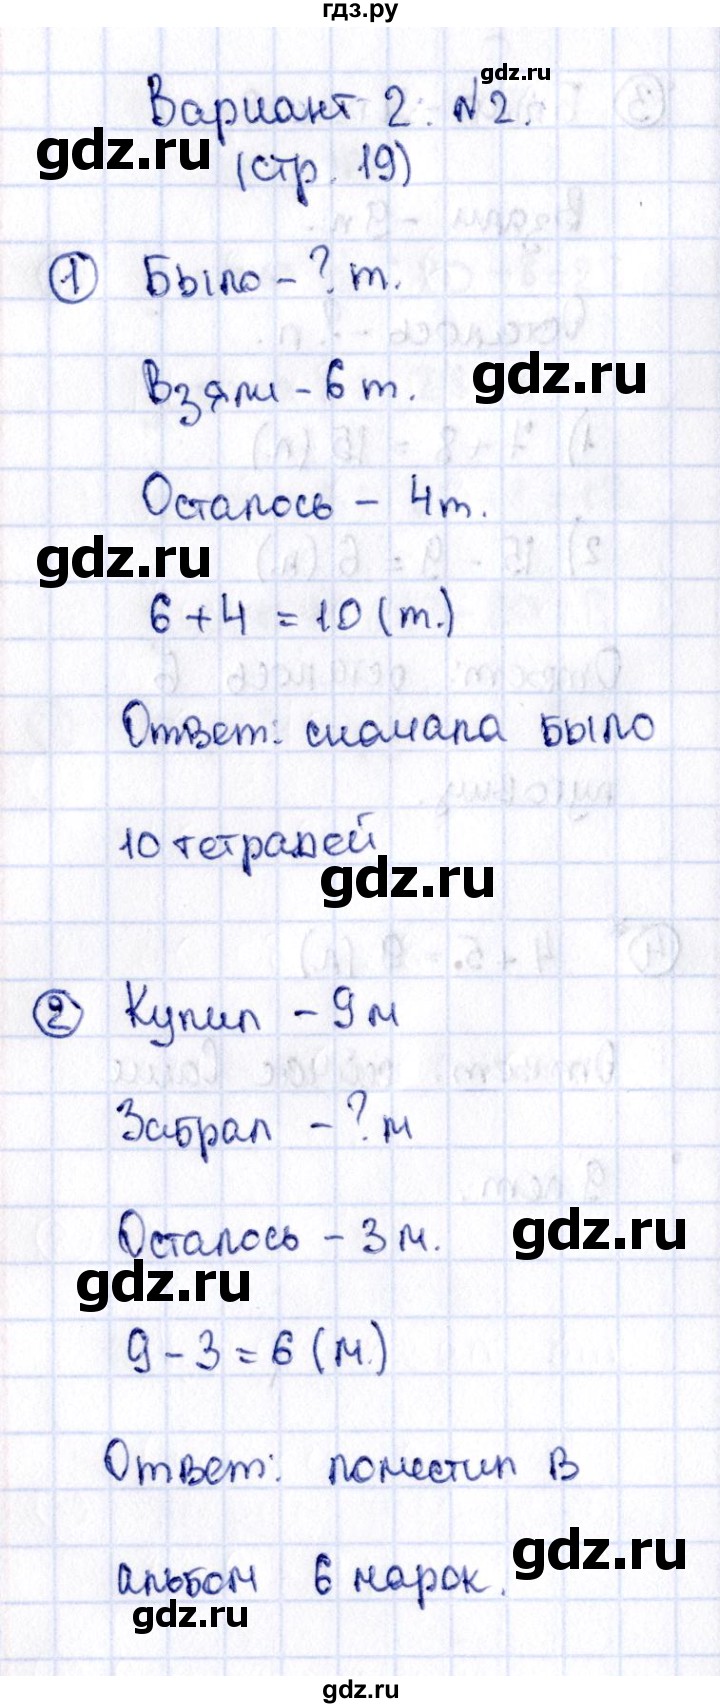 гдз.ру
gdz.ru
Вариант 2. №2.
gdz.ru
(стр. 19)
1 Было - ? т.
gdz.ru
Взяли - 6 т.
Осталось - 4 т.
gdz.ru
6 + 4 = 10 (т.)
Ответ: сначала было
10 тетрадей
gdz.ru
2 Купил - 9 м
Забрал - ? м
Осталось - 3 м.
gdz.ru
gdz.ru
9 - 3 = 6 (м.)
Ответ: поместил в
gdz.ru
альбом 6 марок.
gdz.ru
gdz.ru